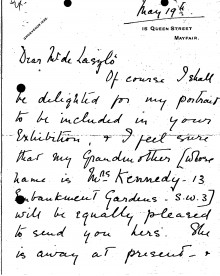 May 19th
15 QUEEN STREET
MAYFAIR.
Dear Mr de Laszlo
Of course I shall
be delighted for my portrait
to be included in your
Exhibition, & I feel sure
that my Grandmother [whose
name is Mrs Kennedy - 13
Embankment Gardens - S.W.3]
will be equally pleased
to send you hers. She
is away at present - &